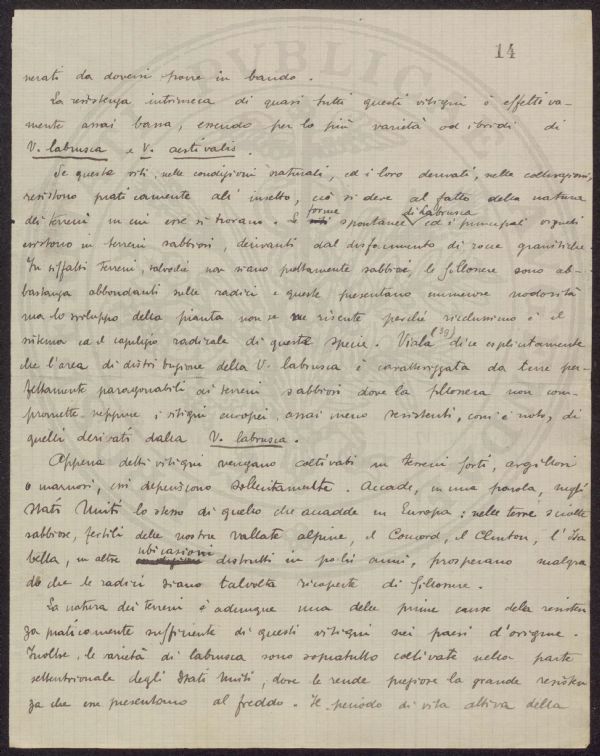 14
nerati da doversi porre in bando.
La resistenza intrinseca di quasi tutti questi vitigni è effettiva-
mente assai bassa, essendo per lo più varietà od ibridi di
V. labrusca e V. aestivalis.
Se queste viti, nelle condizioni naturali, ed i loro derivati, nelle coltivazioni,
resistono praticamente all'insetto, ciò si deve al fatto della natura
dei terreni in cui esse si trovano. Le forme spontanee di Labrusca ed i principali
esistono in terreni sabbiosi, derivanti dal disfacimento di rocce granitiche.
In siffatti terreni, salvochè non siano prettamente sabbiosi, le fillossere sono ab-
bastanza abbondanti sulle radici e queste presentano immense nodosità
ma lo sviluppo della pianta non se ne risente perchè ricchissimo è il
sistema ed il capillizio radicale di questa specie. Viala (39) dice esplicitamente
che l'area di distribuzione della V. labrusca è caratterizzata da terre per-
fettamente paragonabili ai terreni sabbiosi dove la fillossera non com-
promette neppure i vitigni europei, assai meno resistenti, com'è noto, di
quelli derivati dalla V. labrusca.
Appena detti vitigni vengano coltivati in terreni forti, argillosi
o marnosi, essi deperiscono sollecitamente. Accade, in una parola, negli
Stati Uniti lo stesso di quello che accadde in Europa: nelle terre sciolte
sabbiose, fertili delle nostre vallate alpine, il Concord, il Clinton, l'Isa
bella, in altre ubicazioni distrutti in pochi anni, prosperano malgra
do che le radici siano talvolta ricoperte di fillossere.
La natura dei terreni è adunque una delle prime cause della resisten
za praticamente sufficiente di questi vitigni nei paesi d'origine.
Inoltre, le varietà di labrusca sono sopratutto coltivate nella parte
settentrionale degli Stati Uniti, dove le rende pregiose la grande resisten
za che esse presentano al freddo. Il periodo di vita attiva della